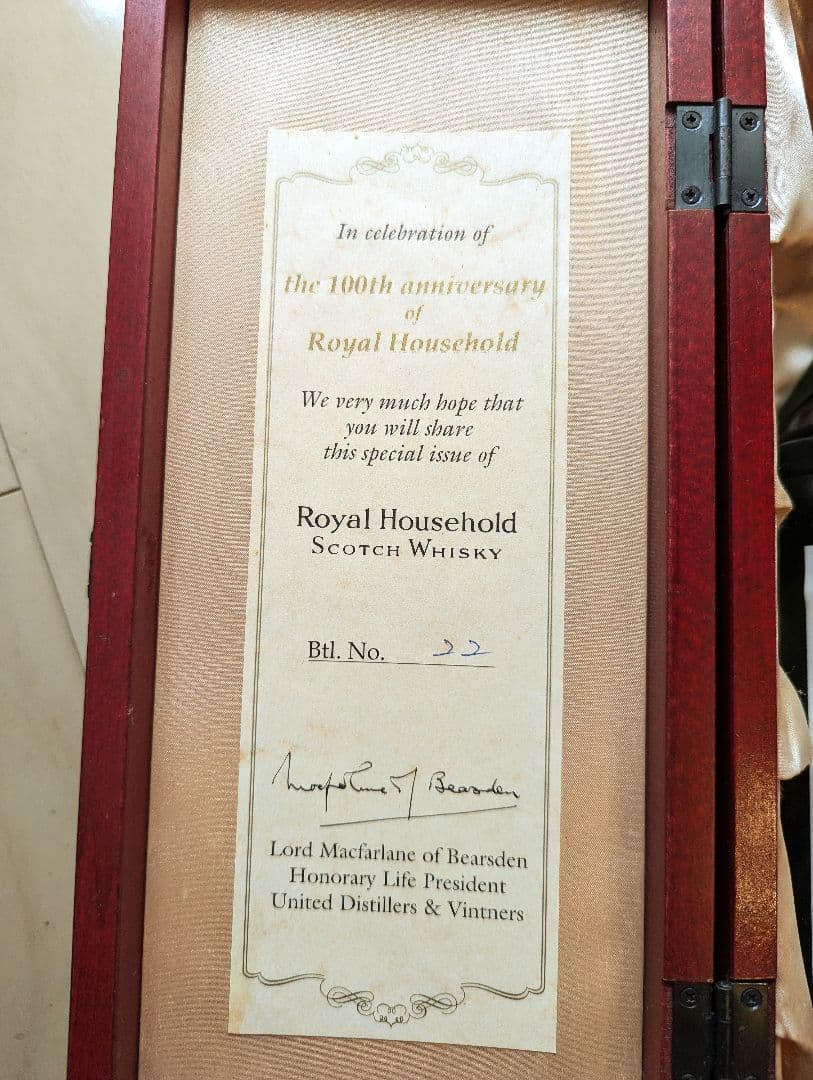 In celebration of
the 100th anniversary
of
Royal Household
We very much hope that
you will share
this special issue of
Royal Household
SCOTCH WHISKY
Btl. No. 22
Macfarlane of Bearsden
Lord Macfarlane of Bearsden
Honorary Life President
United Distillers & Vintners